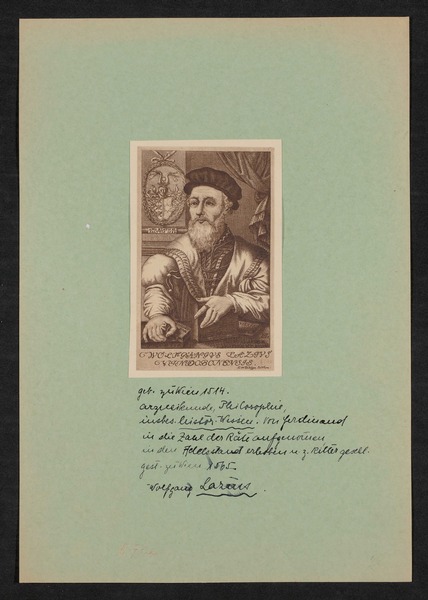 WOLFGANGVS LAZIVS
VINDOBONENSIS
geb. zu Wien 1514.
Philosophie,
insbes. histor. Wissen. Von Ferdinand
in die Zahl der Räte aufgenommen
in den Adelsstand erhoben u. z. Ritter geschl.
gest. zu Wien 1565.
Wolfgang Lazius.